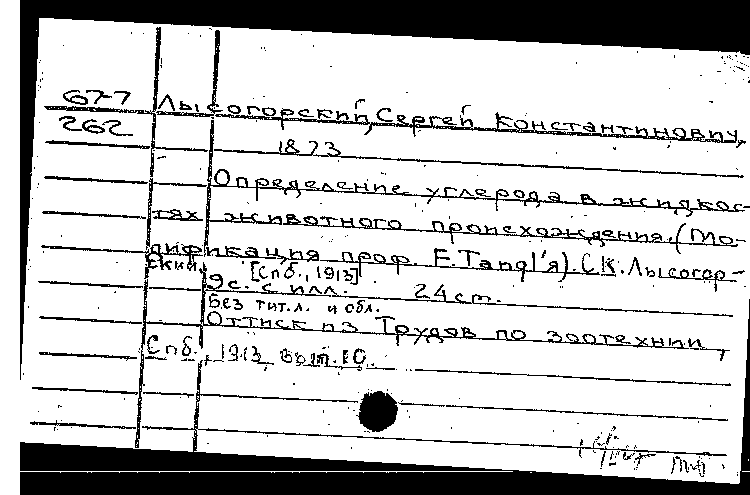 67-7 Лысогорский, Сергей Константинович,
262
1873
Определение углерода в жидкос-
тях животного происхождения. (Мо-
дификация проф. E. Tangl'я). С.К. Лысогор-
ский. [Спб., 1913].
9 с. с илл. 24 cm.
Без тит. л. и обл.
Оттиск из Трудов по зоотехнии,
Спб., 1913, вып. 10.